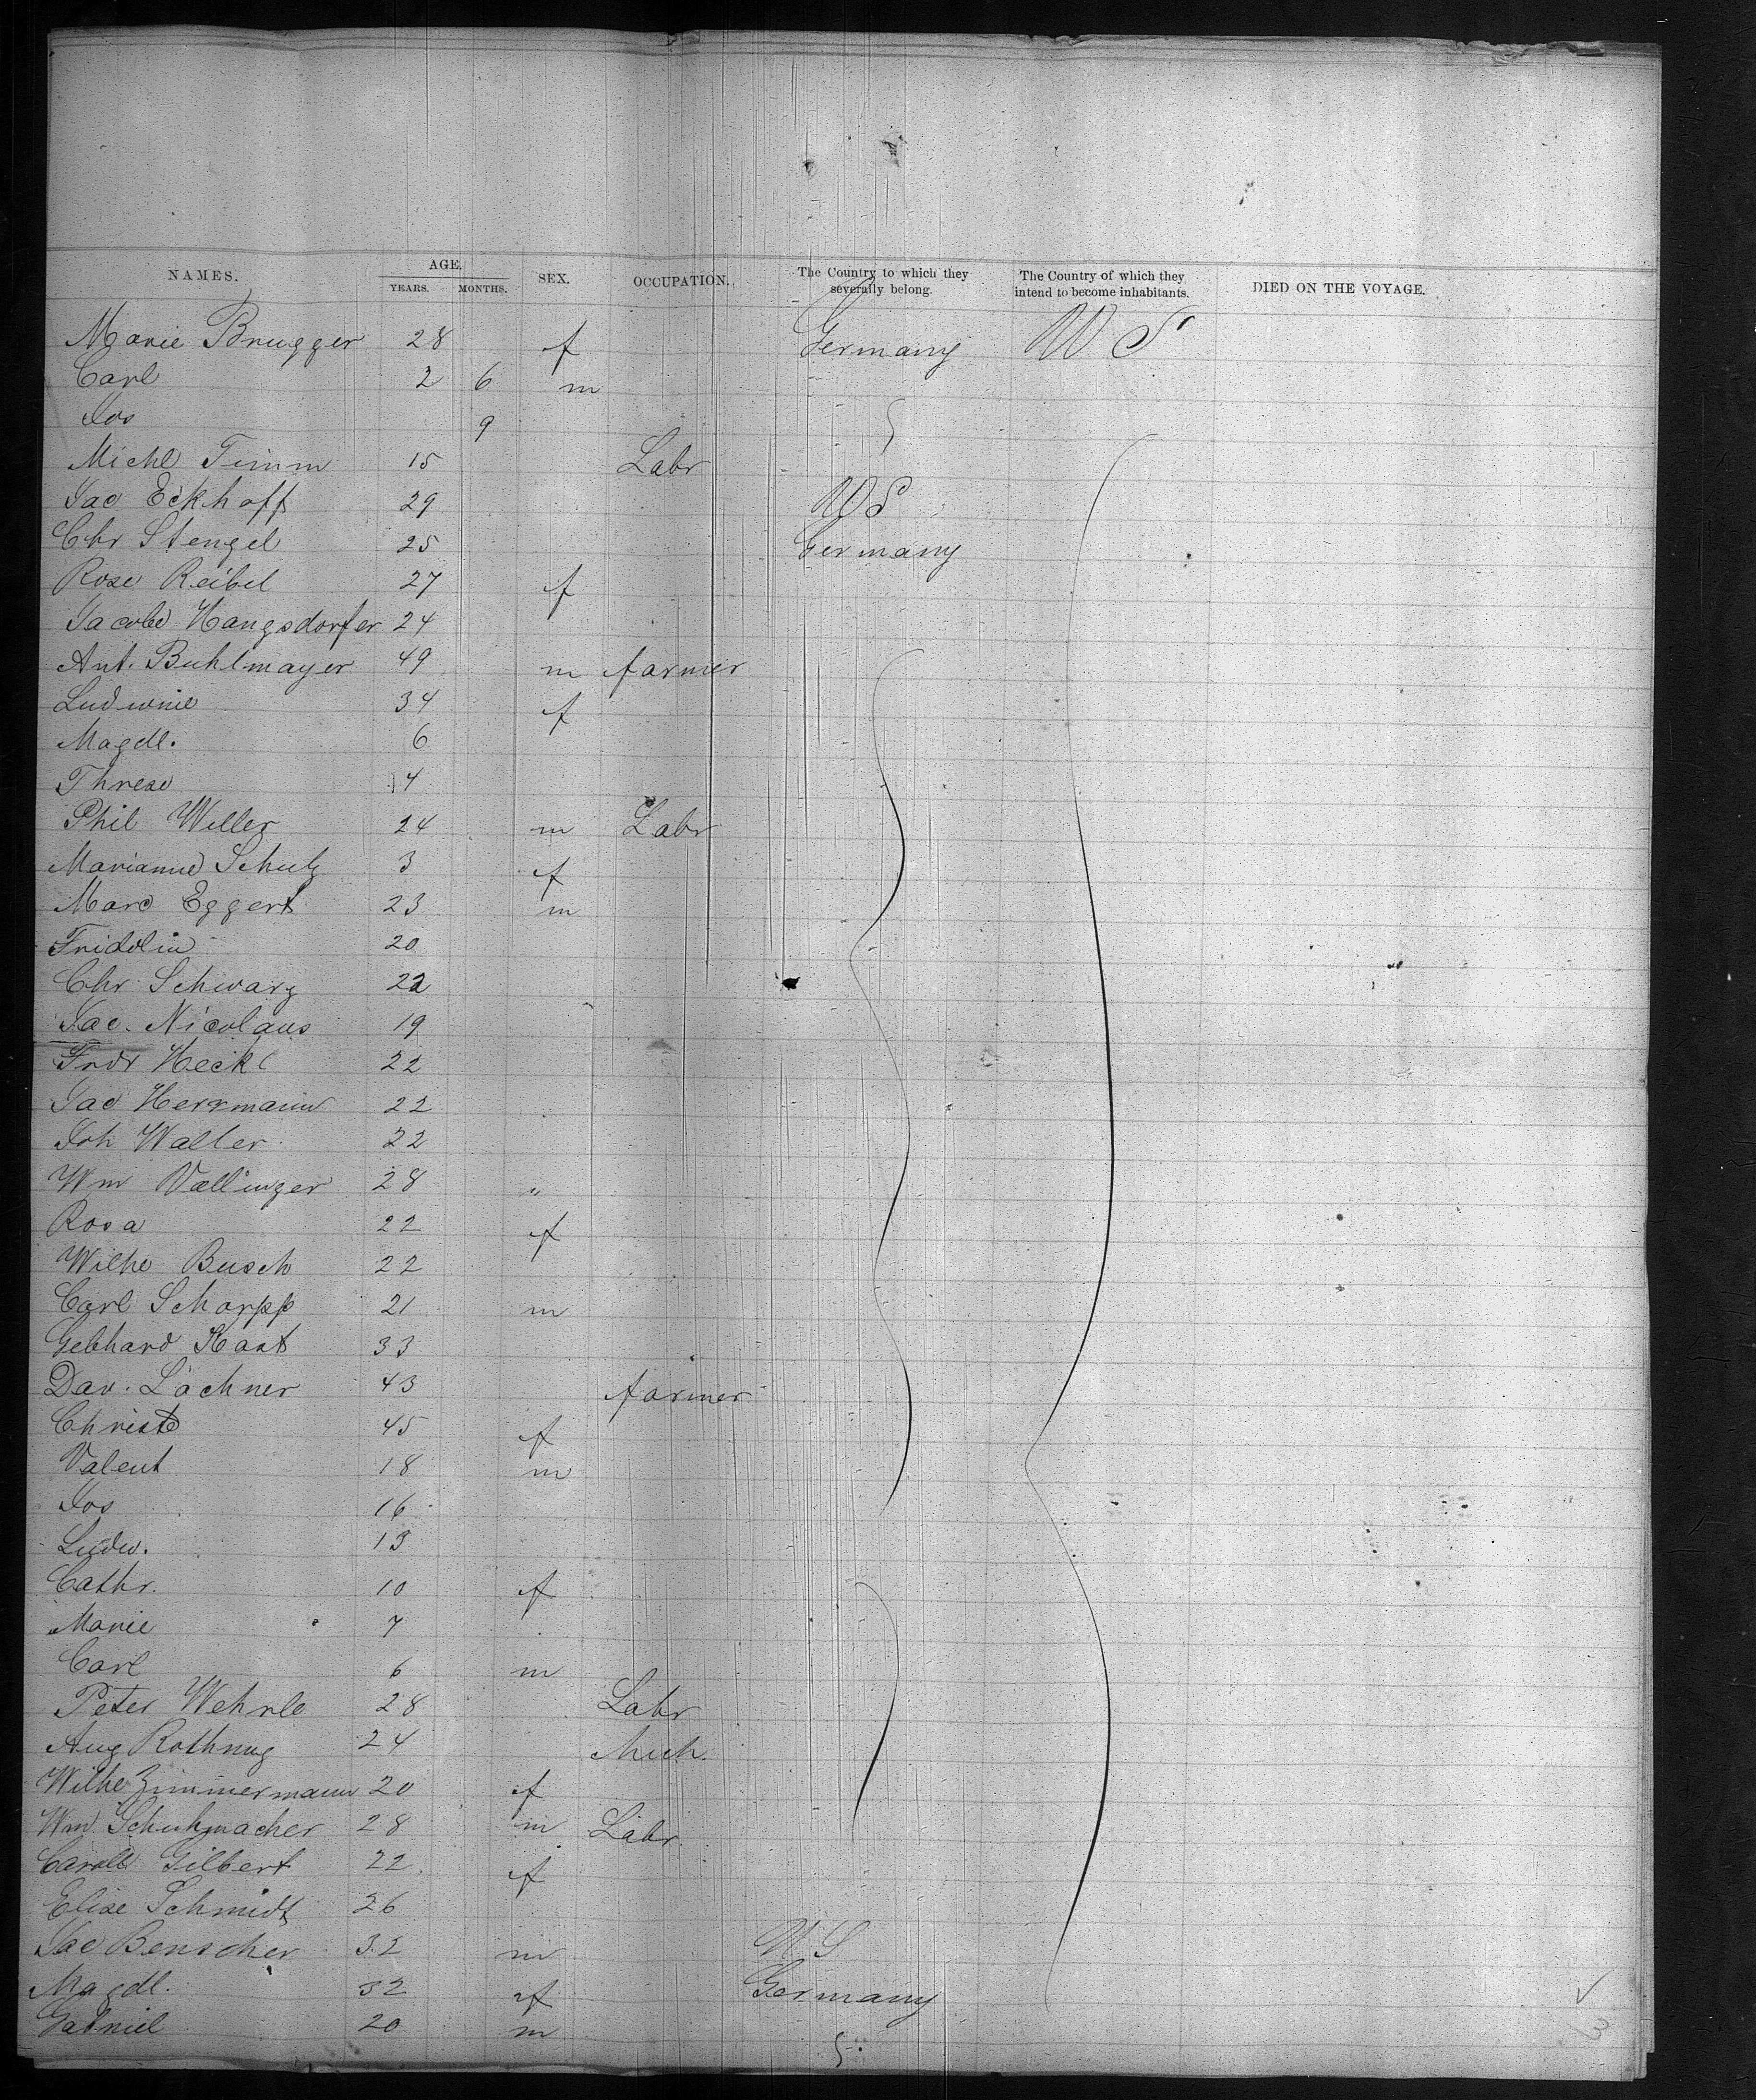 NAMES. AGE. SEX. OCCUPATION. The Country to which they severally belong. The Country of which they intend to become inhabitants. DIED ON THE VOYAGE.
YEARS. MONTHS.
Marie Brugger 28 f Germany U S
Carl 2 6 m
Jos 9
Michl Timm 15 Labr
Jac Eckhoff 29 U S
Chr Stengel 25 Germany
Rose Reibel 27 f
Jacobe Hangsdorfer 24
Ant. Buhlmayer 49 m farmer
Ludwine 34 f
Magdl. 6
Threse 4
Phil Weller 24 m Labr
Marianne Schutz 3 f
Marc Eggert 23 m
Fridolin 20
Chr Schwarz 22
Jac. Nicolaus 19
Frdr Heckl 22
Jac Herrmann 22
Joh Walter 22
Wm Vallinger 28 "
Rosa 22 f
Wilhe Busch 22
Carl Schorpp 21 m
Gebhard Kast 33
Dav. Lochner 43 farmer
Christe 45 f
Valent 18 m
Jos 16
Ludw. 13
Cathr. 10 f
Marie 7
Carl 6 m
Peter Wehrle 28 Labr
Aug Rothnug 24 Mech.
Wilhe Zimmermann 20 f
Wm. Schuhmacher 28 m Labr.
Carole Gilbert 22 f
Elise Schmidt 26
Jac Benscher 32 m U S
Magdl. 32 f Germany
Gabriel 20 m